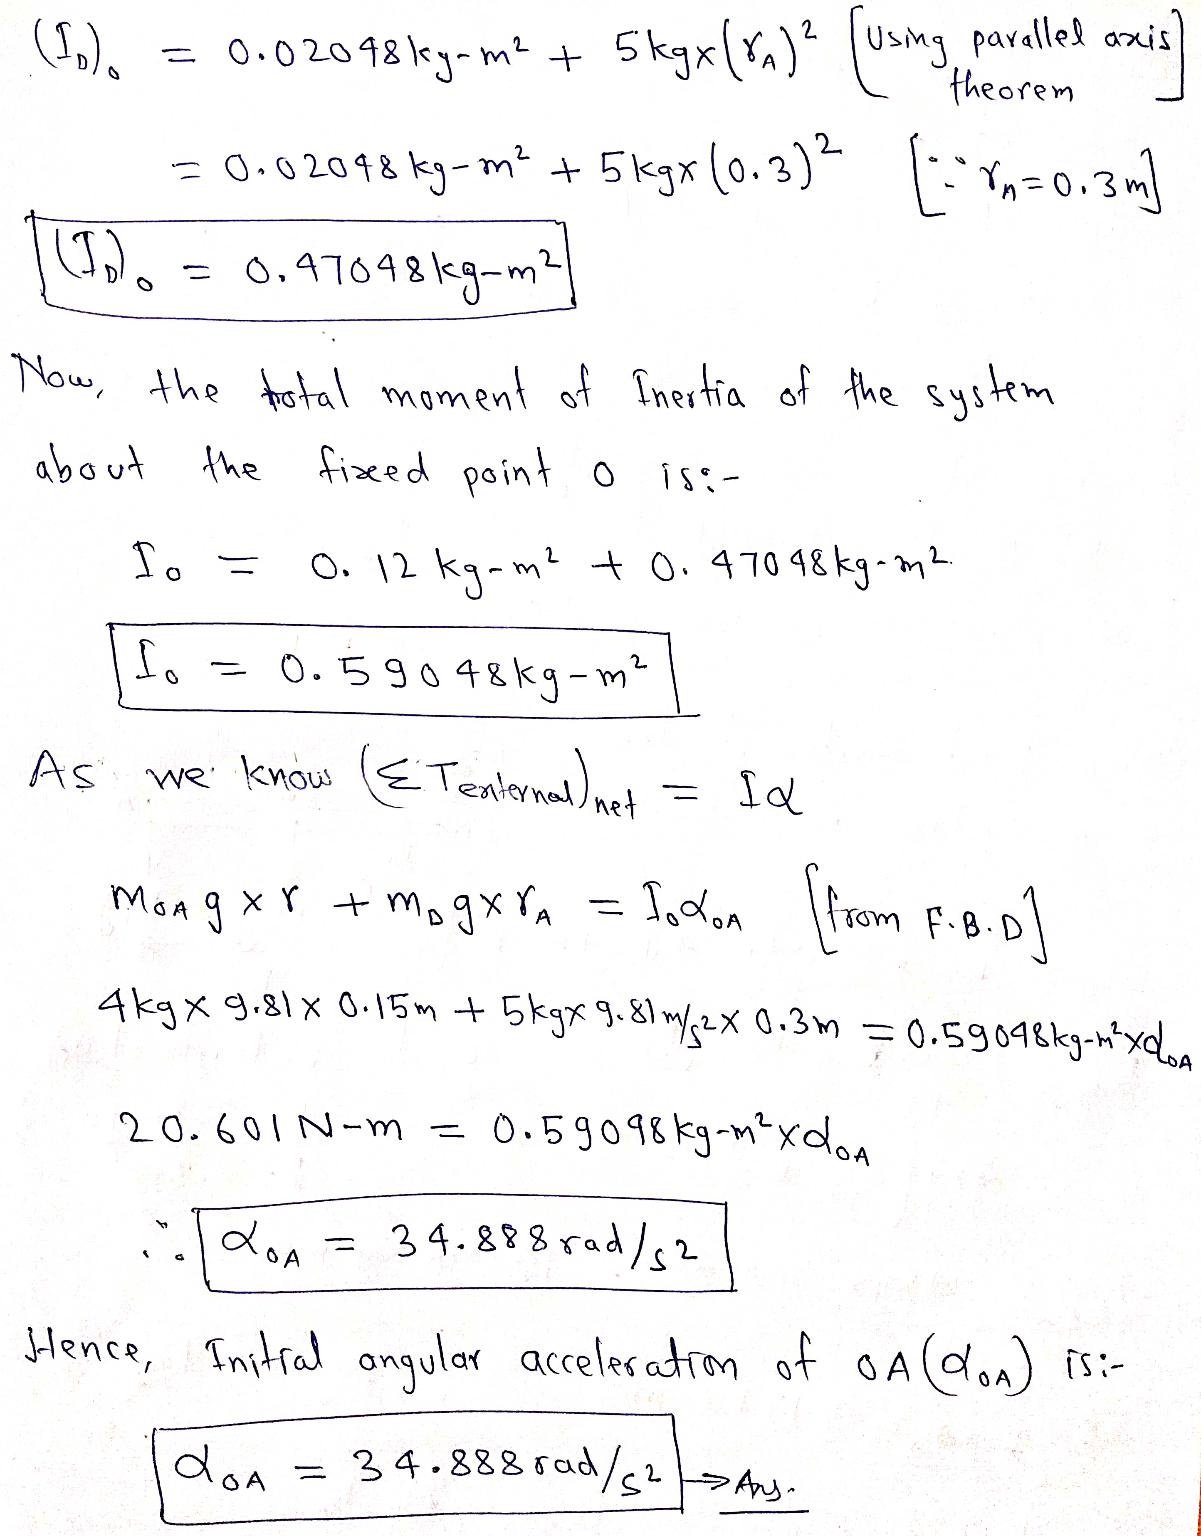 (I_D)_o = 0.02048kg-m² + 5kgx(r_A)² [Using parallel axis theorem]
= 0.02048 kg-m² + 5kgx(0.3)² [∵ r_A=0.3m]
(I_D)_o = 0.47048kg-m²
Now, the total moment of Inertia of the system
about the fixed point o is:-
I_o = 0.12 kg-m² + 0.47048kg-m²
I_o = 0.59048kg-m²
As we know (ΣTexternal)net = Iα
m_OA g x r + m_D g x r_A = I_o α_OA [from F.B.D]
4kg x 9.81 x 0.15m + 5kgx 9.81m/s² x 0.3m = 0.59048kg-m²xα_OA
20.601N-m = 0.59048kg-m²xα_OA
∴ α_OA = 34.888rad/s²
Hence, Initial angular acceleration of OA(α_OA) is:-
α_OA = 34.888rad/s² → Ans.